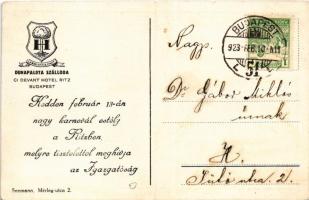 DUNAPALOTA SZÁLLODA
CI DEVANT HOTEL RITZ
BUDAPEST
Kedden február 13-án
nagy karneval estély
a Ritzben,
melyre tisztelettel meghívja
az Igazgatóság
BUDAPEST
923 FEB. 10
Nagys.
Dr Gábor Miklós
úrnak